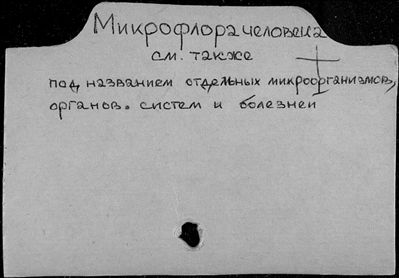 Микрофлора человека
см. также
под названием отдельных микроорганизмов,
органов. систем и болезней